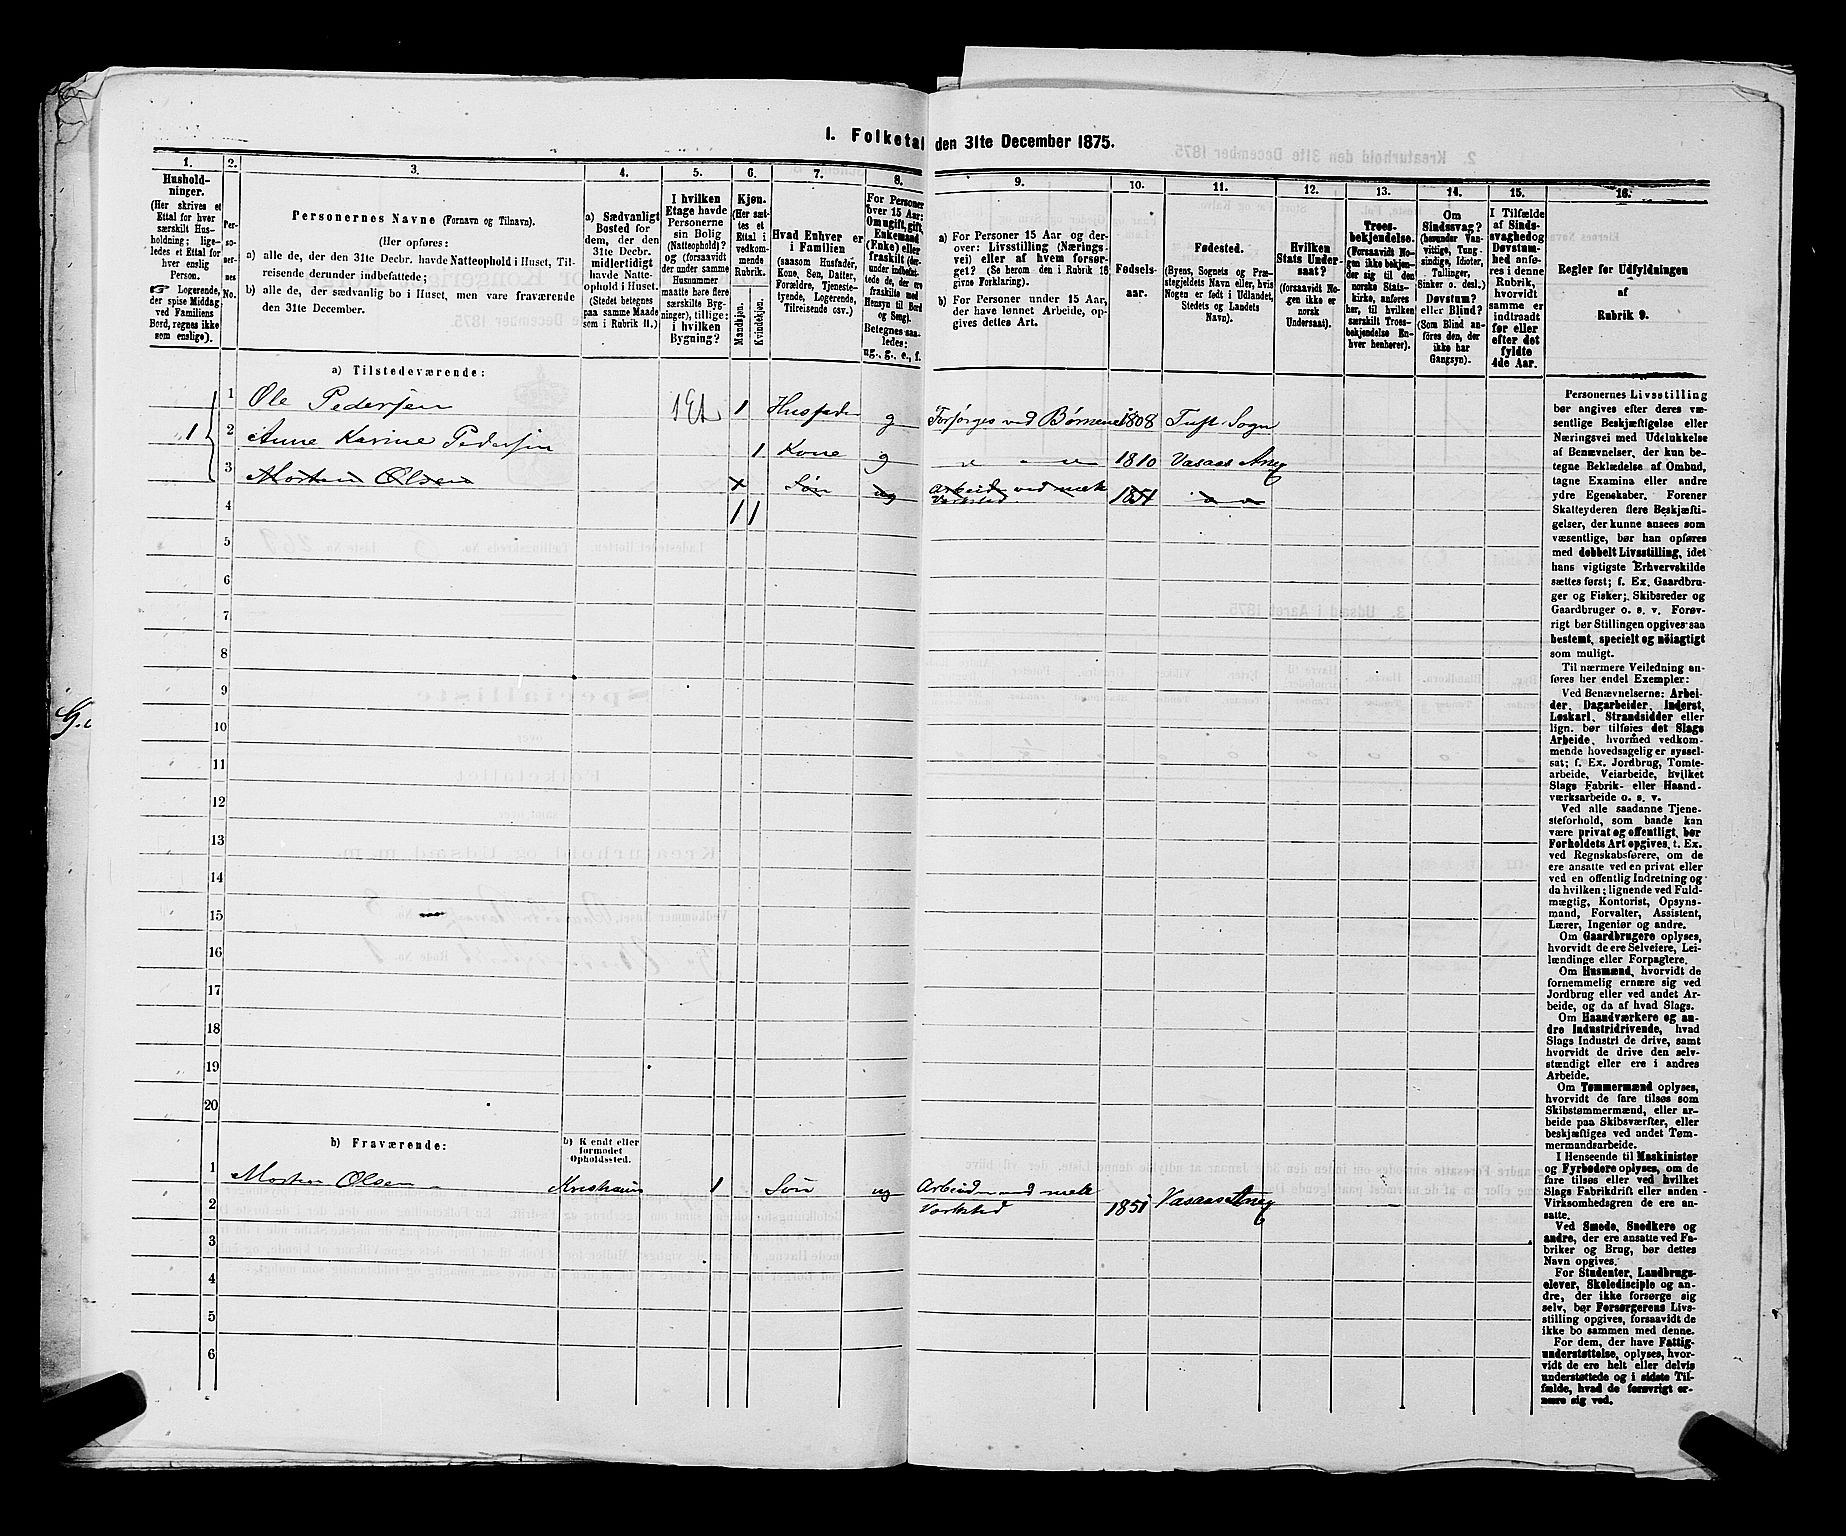 I. Folketal den 31te December 1875.
1.
Hushold-
ninger.
(Her skrives et
Ettal for hver
særskilt Hus-
holdning; lige-
ledes et Ettal for
hver enslig
Person.
☞ Logerende,
der spise Middag
ved Familiens
Bord, regnes ikke
som enslige).
2.
Per-
so-
ner-
nes
No.
3.
Personernes Navne (Fornavn og Tilnavn).
(Her opføres:
a) alle de, der den 31te Decbr. havde Natteophold i Huset, Til-
reisende derunder indbefattede;
b) alle de, der sædvanlig bo i Huset, men vare fraværende
den 31te December.
4.
a) Sædvanligt
Bosted for
dem, der den
31te Decbr.
midlertidigt
havde Natte-
ophold i Huset.
(Stedet betegnes
paa samme Maade
som i Rubrik 11.)
5.
I hvilken
Etage havde
Personerne
sin Bolig
(Natteophold)?
og (forsaavidt
der under samme
Husnummer
maatte høre flere
særskilte Byg-
ninger), tillige:
i hvilken
Bygning?
6.
Kjøn.
(Her sæt-
tes et
Ettal i
vedkom-
mende
Rubrik.
Mandkjøn.
Kvindekjøn.
7.
Hvad Enhver er
i Familien
(saasom Husfader,
Kone, Søn, Datter,
Forældre, Tjeneste-
tyende, Logerende,
Tilreisende osv.)
8.
For Personer
over 15 Aar:
Om ugift, gift,
Enkemand
(Enke) eller
fraskilt (der-
under indbefat-
tede de, der ere
fraskilte med
Hensyn til Bord
og Seng).
Betegnes saa-
ledes:
ug., g., e., f.
9.
a) For Personer 15 Aar og der-
over: Livsstilling (Nærings-
vei) eller af hvem forsør-
get? (Se herom den i Rubrik 16
givne Forklaring).
b) For Personer under 15 Aar,
der have lønnet Arbeide, op-
gives dettes Art.
10.
Fødsels-
aar.
11.
Fødested.
(Byens, Sognets og Præ-
stegjeldets Navn eller, hvis
Nogen er født i Udlandet,
Stedets og Landets
Navn).
12.
Hvilken
Stats Under-
saat?
(forsaavidt No-
gen ikke er
norsk
Undersaat).
13.
Troes-
bekjendelse.
(Forsaavidt No-
gen ikke bekjen-
der sig til den
norske Stats-
kirke, anføres
her, til hvilken
særskilt Troes-
bekjendelse En-
hver henhører).
14.
Om
Sindssvag?
(herunder Van-
vittige, Tung-
sindige, Idioter,
Tullinger,
Sinker o. desl.)
Døvstum?
eller Blind?
(Som Blind an-
føres den, der
ikke har
Gangsyn).
15.
I Tilfælde
af Sinds-
svaghed og
Døvstum-
hed anfø-
res i denne
Rubrik,
hvorvidt
samme er
indtraadt
før eller
efter det
fyldte
4de Aar.
16.
Regler for Udfyldningen
af
Rubrik 9.
a) Tilstedeværende:
1 Ole Pedersen 1 Et 1 Husfader g Forsørges ved Børnene 1808 Tuft Sogn
1 2 Anne Karine Pedersen 1 Kone g " " " 1810 Vasaas Anex
3 Morten Olsen Søn ug Arbeider ved mek 1851 " "
Værksted
4 1 1
5
6
7
8
9
10
11
12
13
14
15
16
17
18
19
20
b) Fraværende:
b) Kjendt eller
formodet
Opholdssted.
1 Morten Olsen 1 Søn ug Arbeider ved mek 1851 Vasaas Anex
2 Værksted
3
4
5
6
Personernes Livsstilling
bør angives efter deres væ-
sentlige Beskjæftigelse eller
Næringsvei med Udelukkelse
af Benævnelser, der kun be-
tegne Beklædelse af Ombud,
tagne Examina eller andre
ydre Egenskaber. Forener
Skatteyderen flere Beskjæfti-
gelser, der kunne ansees som
væsentlige, bør han opføres
med dobbelt Livsstilling, idet
hans vigtigste Erhvervskilde
sættes først; f. Ex. Gaardbru-
ger og Fisker; Skibsreder og
Gaardbruger o. s. v. Forøv-
rigt bør Stillingen opgives saa
bestemt, specielt og nöiagtigt
som muligt.
Til nærmere Veiledning an-
føres her endel Exempler:
Ved Benævnelserne: Arbei-
der, Dagarbeider, Inderst,
Løskarl, Strandsidder eller
lign. bør tilføies det Slags
Arbeide, hvormed vedkom-
mende hovedsagelig er syssel-
sat; f. Ex. Jordbrug, Tomte-
arbeide, Veiarbeide, hvilket
Slags Fabrik- eller Haand-
værksarbeide o. s. v.
Ved alle saadanne Tjene-
steforhold, som baade kan
være privat og offentligt, bør
Forholdets Art opgives, f. Ex.
ved Regnskabsførere, om de
ere ansatte ved en privat eller
ved en offentlig Indretning og
da hvilken; lignende ved Fuld-
mægtig, Kontorist, Opsyns-
mand, Forvalter, Assistent,
Lærer, Ingeniør og andre.
Om Gaardbrugere oplyses,
hvorvidt de ere Selveiere, Lei-
lændinge eller Forpagtere.
Om Husmænd, hvorvidt de
fornemmelig ernære sig ved
Jordbrug eller ved andet Ar-
beide, og da af hvad Slags.
Om Haandværkere og an-
dre Industridrivende, hvad
Slags Industri de drive, samt
hvorvidt de drive den selv-
stændigt eller ere i andres
Arbeide.
Om Tømmermænd oplyses,
hvorvidt de fare tilsøs som
Skibstømmermænd, eller ar-
beide paa Skibsværfter, eller
beskjæftiges ved andet Tøm-
mermandsarbeide.
I Henseende til Maskinister
og Fyrbødere oplyses, om de
fare tilsøs eller ved hvilket
Slags Fabrikdrift eller anden
Virksomhedsgren de ere an-
satte.
Ved Smede, Snedkere og
andre, der ere ansatte ved Fa-
briker og Brug, bør dettes
Navn opgives.
For Studenter, Landbrugs-
elever, Skoledisciple og an-
dre, der ikke forsørge sig
selv, bør Forsørgerens Livs-
stilling opgives, forsaavidt de
ikke bo sammen med denne.
For dem, der have Fattig-
understøttelse, oplyses, hvor-
vidt de ere helt eller delvis
understøttede og i sidste Til-
fælde, hvad de forøvrigt er-
nære sig ved.